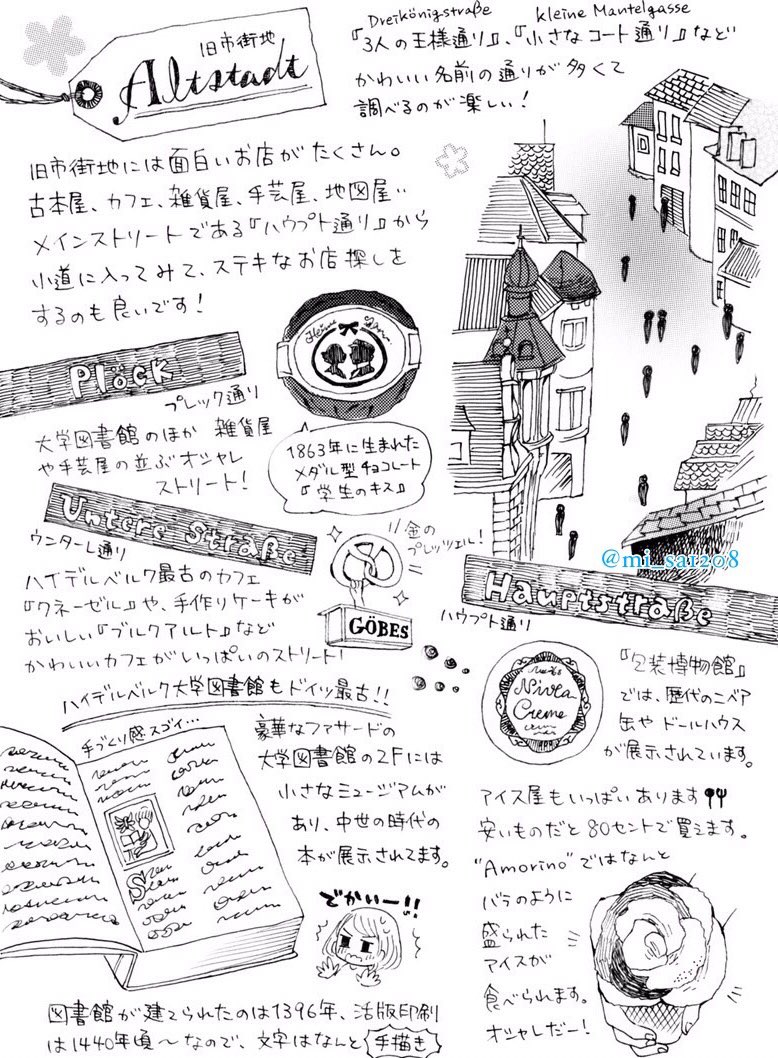 旧市街地
Altstadt
Dreikönigstraße
kleine Mantelgasse
『3人の王様通り』、『小さなコート通り』など
かわいい名前の通りが多くて
調べるのが楽しい！
旧市街地には面白いお店がたくさん。
古本屋、カフェ、雑貨屋、手芸屋、地図屋‥
メインストリートである『ハウプト通り』から
小道に入ってみて、ステキなお店探しを
するのも良いです！
Plöck
プレック通り
大学図書館のほか 雑貨屋
や手芸屋の並ぶオシャレ
ストリート！
1863年に生まれた
メダル型チョコレート
『学生のキス』
Untere Straße
ウンターレ通り
ハイデルベルク最古のカフェ
『クネーゼル』や、手作りケーキが
おいしい『ブルクアルト』など
かわいいカフェがいっぱいのストリート！
金の
プレッツェル！
GÖBES
@mi_sa1208
Hauptstraße
ハウプト通り
Nivea
Creme
『包装博物館』
では、歴代のニベア
缶や ドールハウス
が展示されています。
ハイデルベルク大学図書館もドイツ最古！！
手づくり感スゴイ…
豪華なファサードの
大学図書館の2Fには
小さなミュージアムが
あり、中世の時代の
本が展示されてます。
でかいー！！
図書館が建てられたのは1396年、活版印刷
は1440年頃〜なので、文字はなんと 手描き
アイス屋もいっぱいあります
安いものだと80セントで買えます。
"Amorino"ではなんと
バラのように
盛られた
アイスが
食べられます。
オシャレだー！